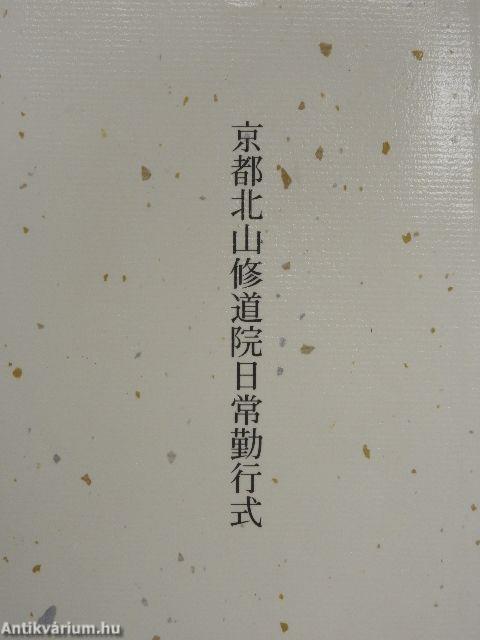 京都北山修道院日常勤行式
Antikvárium.hu